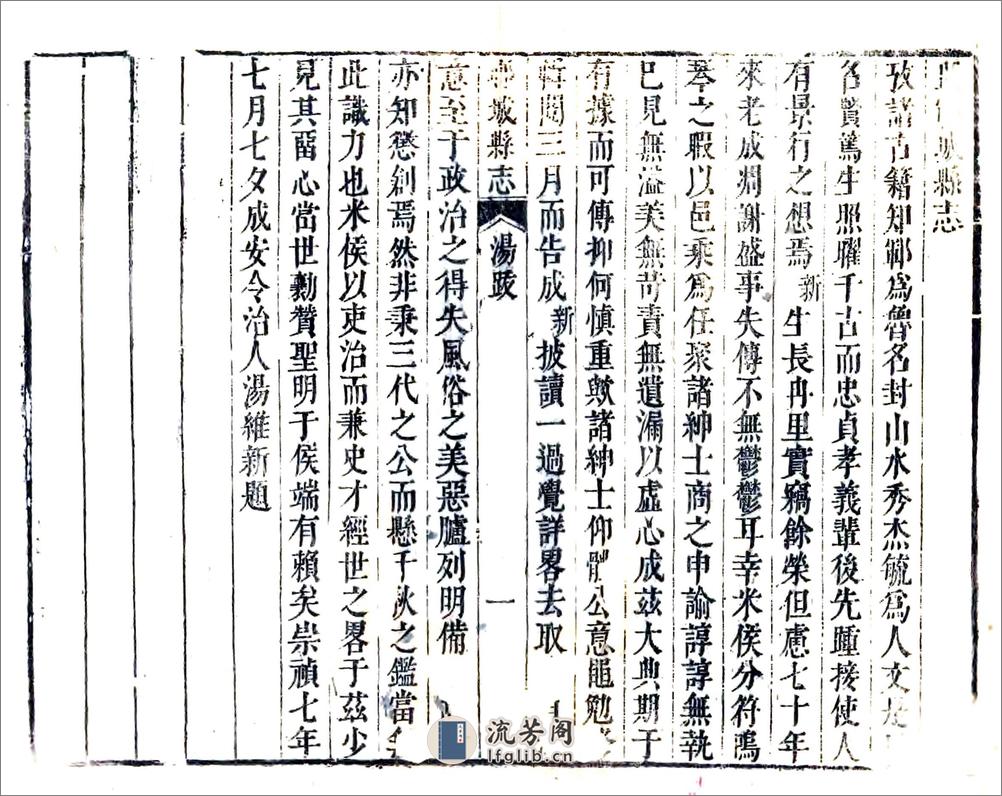 城縣志
攷諸古籍知鄆爲魯名封山水秀杰毓爲人文
名賢篤生照曜千古而忠貞孝義輩後先踵接使人
有景行之想焉新生長冉里實竊餘榮但慮七十年
來老成凋謝盛事失傳不無鬱鬱耳幸米侯分符鳴
琴之暇以邑乘爲任聚諸紳士商之申諭諄諄無執
已見無溢美無苛責無遺漏以虛心成茲大典期于
有據而可傳抑何慎重歟諸紳士仰體公意黽勉
輯閱三月而告成新披讀一過覺詳畧去取
鄆城縣志 湯跋 一
意至于政治之得失風俗之美惡臚列明備
亦知懲創焉然非秉三代之公而懸千秋之鑑當
此識力也米侯以吏治而兼史才經世之畧于茲少
見其畱心當世勷贊聖明于侯端有賴矣崇禎七年
七月七夕成安令治人湯維新題
流芳阁
lfglib.cn